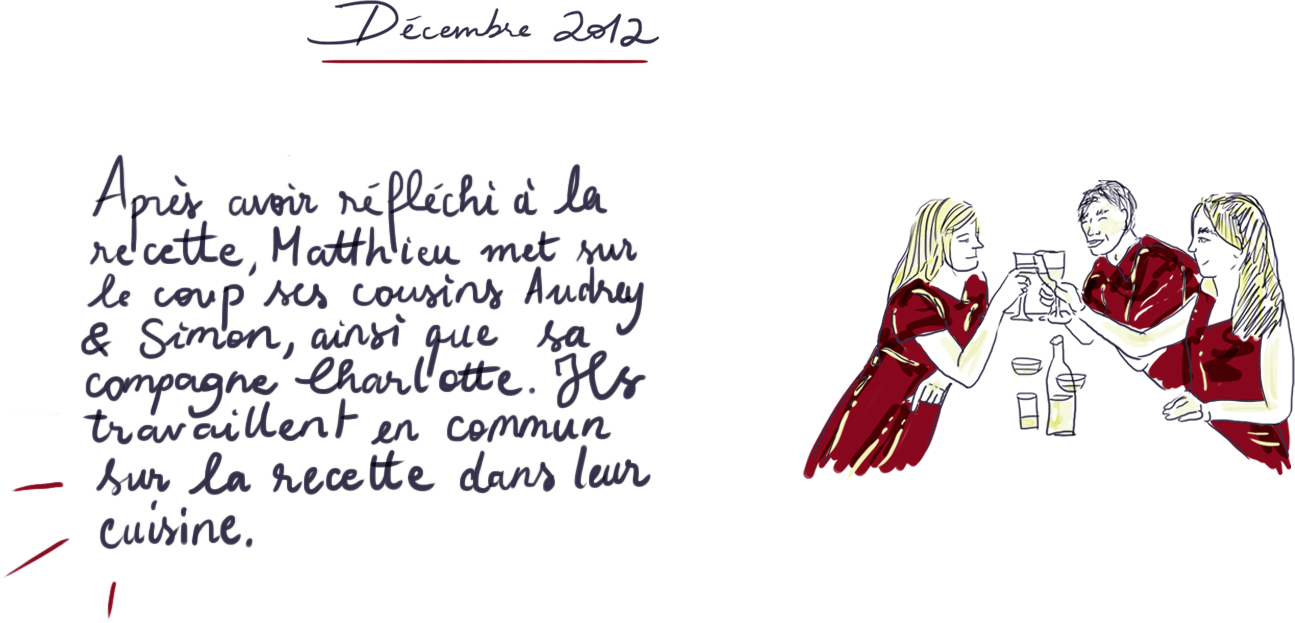 Décembre 2012
Après avoir réfléchi à la
recette, Matthieu met sur
le coup ses cousins Audrey
& Simon, ainsi que sa
compagne Charlotte. Ils
travaillent en commun
sur la recette dans leur
cuisine.